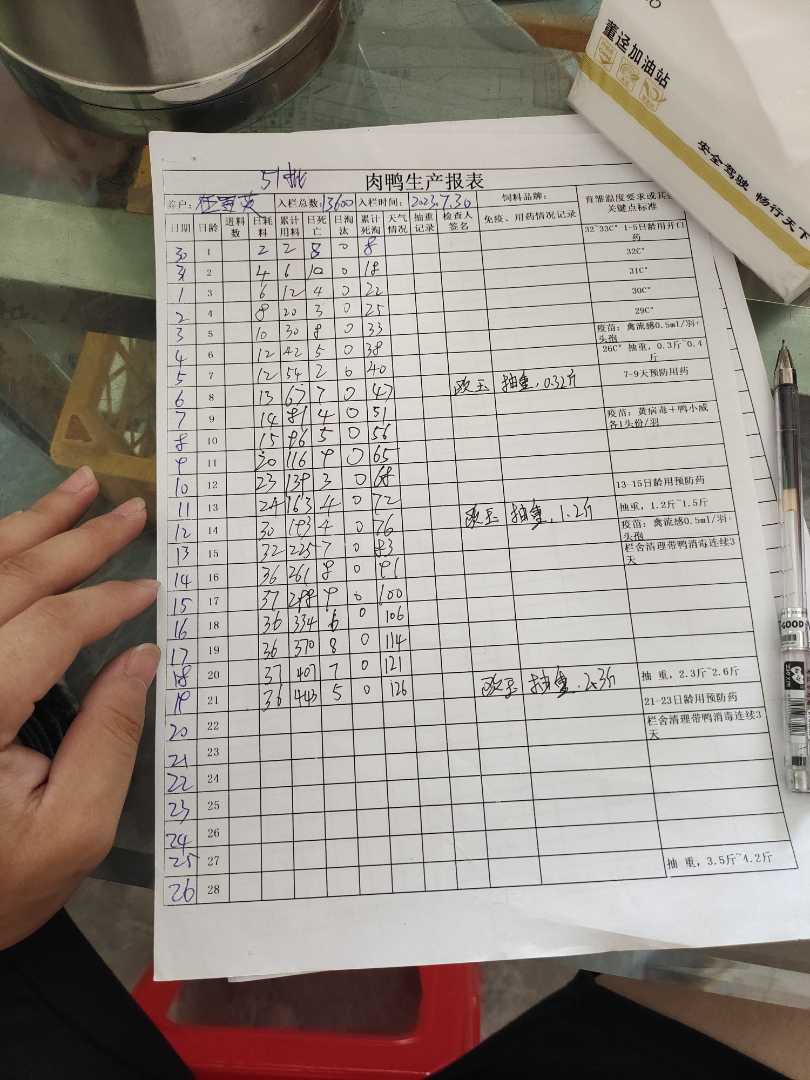 董迳加油站
安全驾驶 畅行天下
51批
肉鸭生产报表
养户: 入栏总数: 13600 入栏时间: 2023.7.30 饲料品牌: 育雏温度要求或其它关键点标准
日期 日龄 进料数 日耗料 累计用料 日死亡 日淘汰 累计死淘 天气情况 抽重记录 检查人签名 免疫、用药情况记录
30 1 2 2 8 0 8 32~33C° 1-5日龄用开口药
31 2 4 6 10 0 18 32C°
1 3 6 12 4 0 22 31C°
2 4 8 20 3 0 25 30C°
3 5 10 30 8 0 33 29C°
4 6 12 42 5 0 38 疫苗: 禽流感0.5ml/羽+头孢
5 7 12 54 2 0 40 26C° 抽重, 0.3斤~0.4斤
6 8 13 67 7 0 47 抽重, 0.32斤 7-9天预防用药
7 9 14 81 4 0 51
8 10 15 96 5 0 56 疫苗: 黄病毒+鸭小威各1头份/羽
9 11 20 116 9 0 65
10 12 23 139 3 0 68
11 13 24 163 4 0 72 13-15日龄用预防药
12 14 30 193 4 0 76 抽重, 1.2斤 抽重, 1.2斤~1.5斤
13 15 32 225 7 0 83 疫苗: 禽流感0.5ml/羽+头孢
14 16 36 261 8 0 91 栏舍清理带鸭消毒连续3天
15 17 37 298 9 0 100
16 18 36 334 6 0 106
17 19 36 370 8 0 114
18 20 37 407 7 0 121
19 21 36 443 5 0 126 抽重, 2.3斤 抽 重, 2.3斤~2.6斤
20 22 21-23日龄用预防药
21 23 栏舍清理带鸭消毒连续3天
22 24
23 25
24 26
25 27
26 28 抽 重, 3.5斤~4.2斤
GOOD